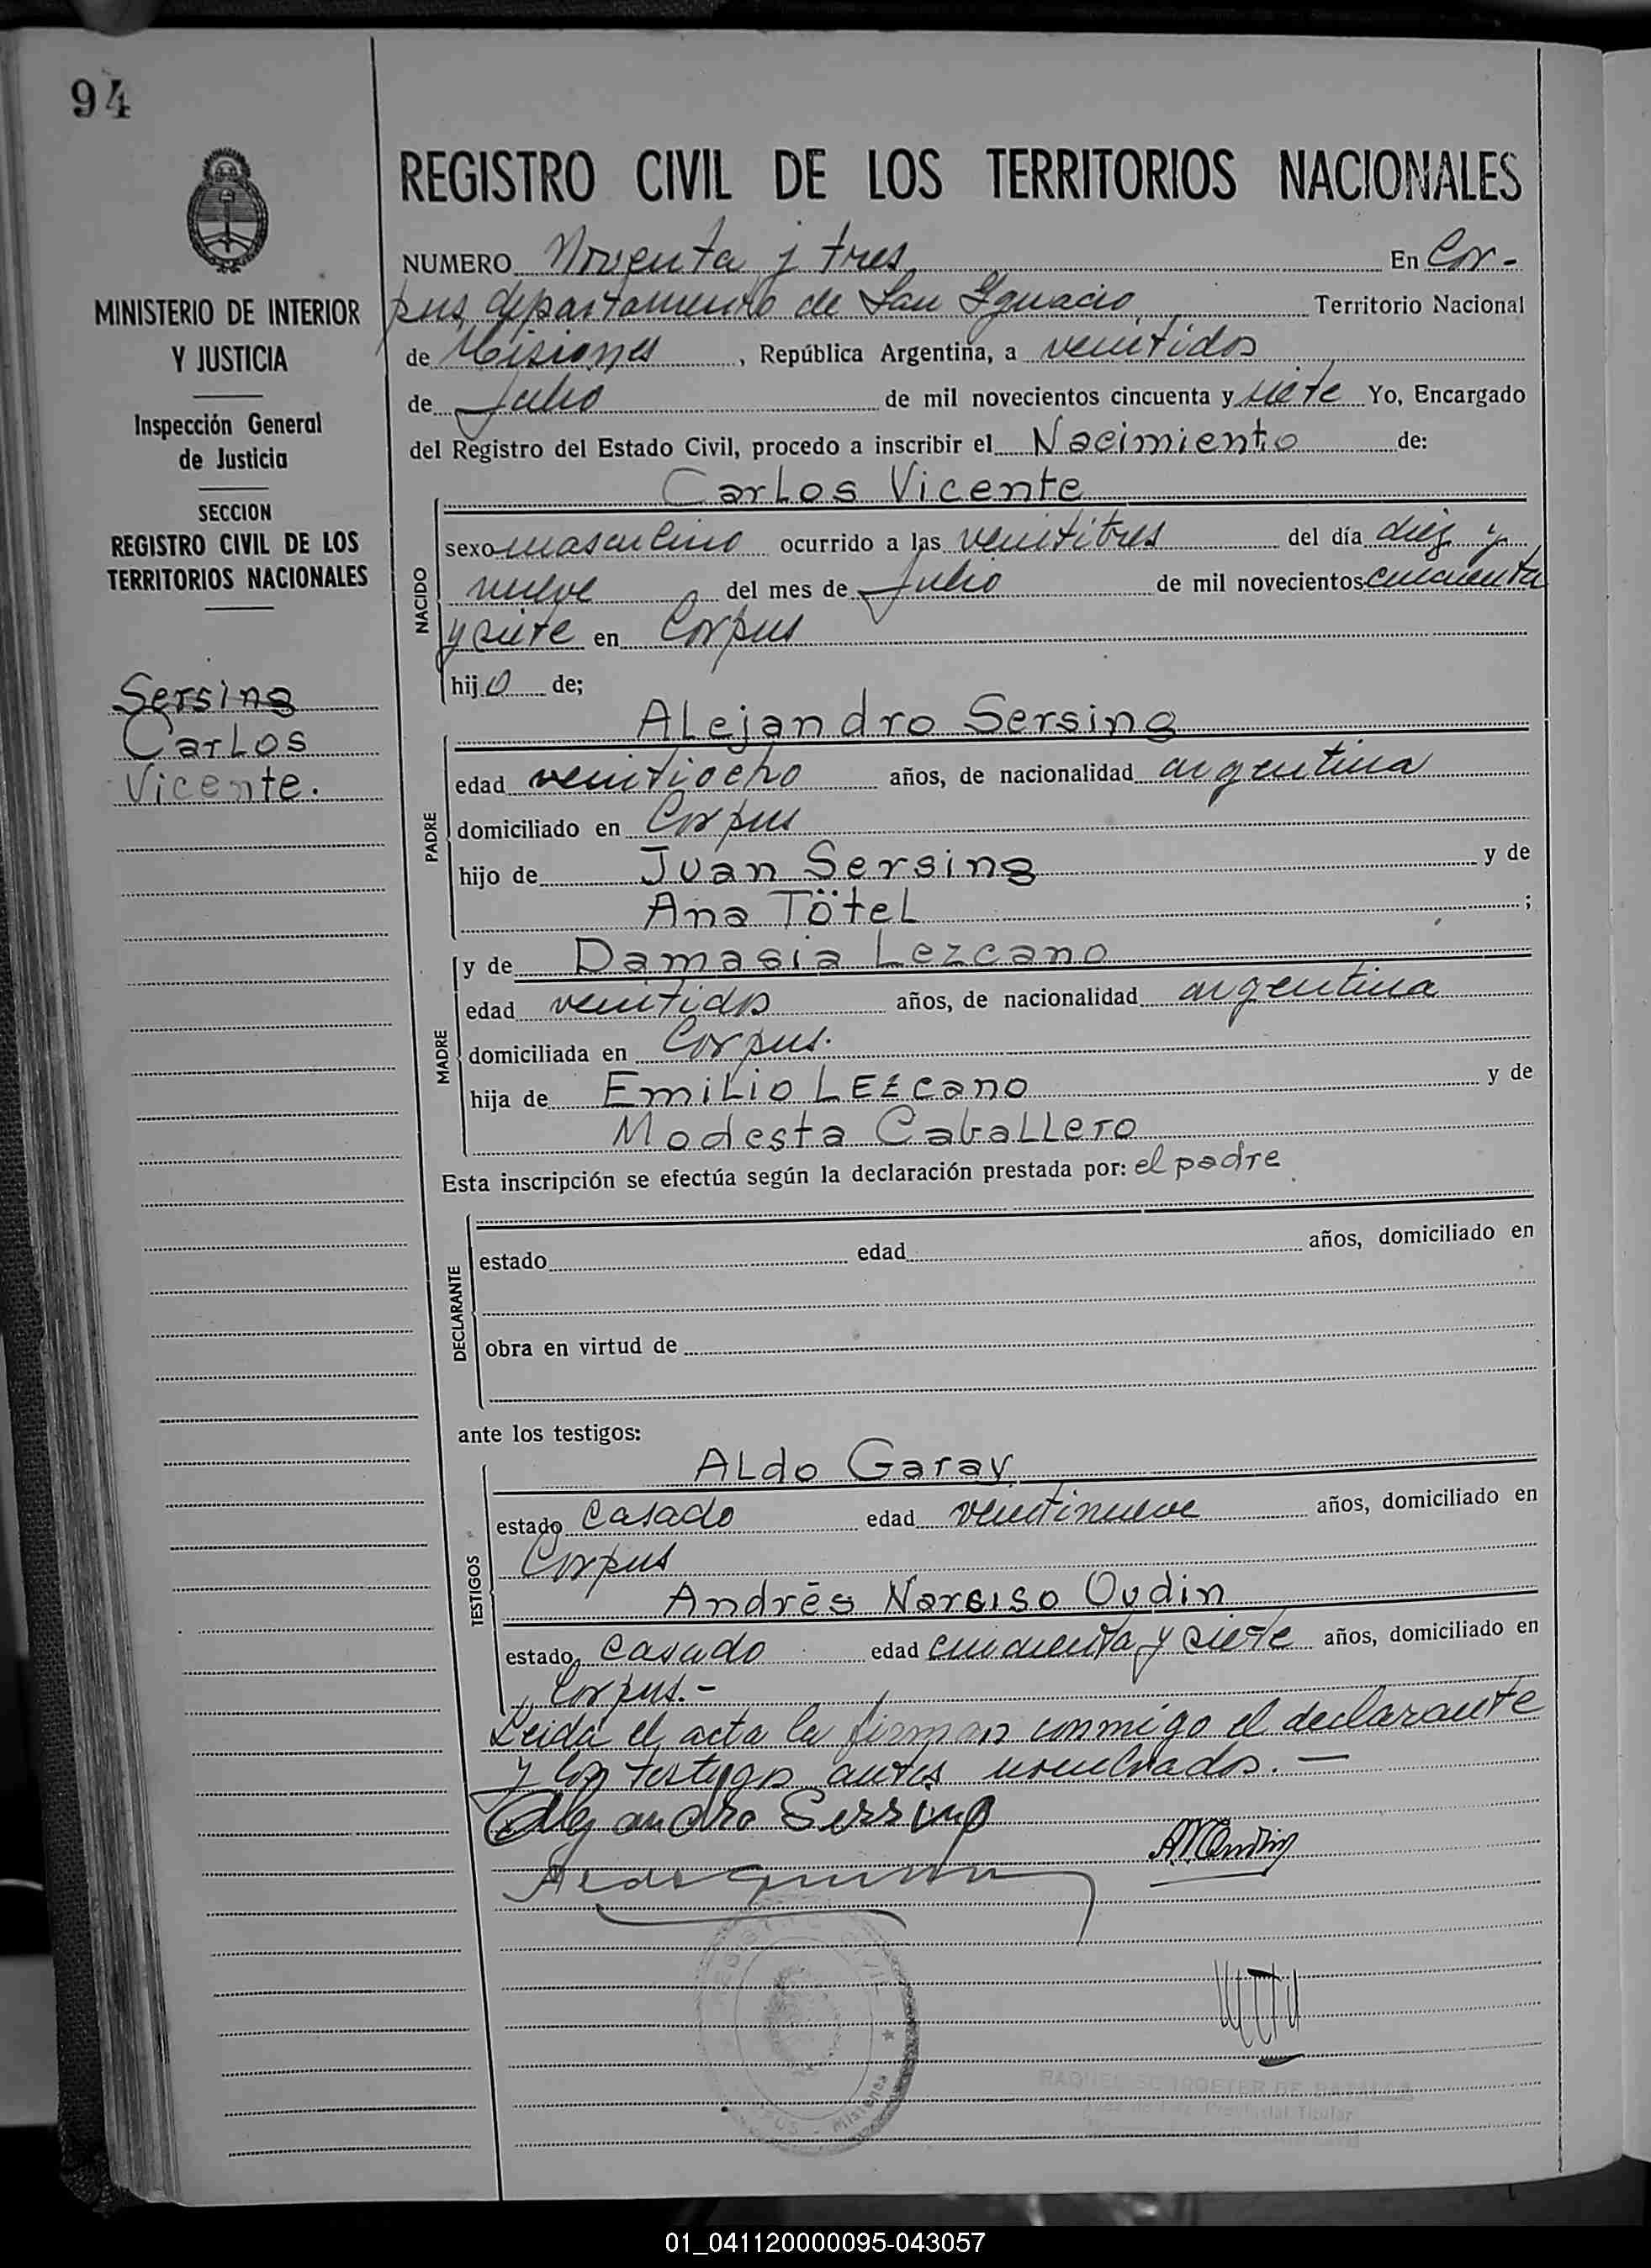 94
REGISTRO CIVIL DE LOS TERRITORIOS NACIONALES
MINISTERIO DE INTERIOR
Y JUSTICIA
Inspección General
de Justicia
SECCION
REGISTRO CIVIL DE LOS
TERRITORIOS NACIONALES
Sersing
Carlos
Vicente.
NUMERO Noventa y tres En Cor-
pus, departamento de San Ygnacio, Territorio Nacional
de Misiones, República Argentina, a veintidos
de Julio de mil novecientos cincuenta y siete Yo, Encargado
del Registro del Estado Civil, procedo a inscribir el Nacimiento de:
Carlos Vicente
NACIDO
sexo masculino ocurrido a las veintitres del día diez y
nueve del mes de Julio de mil novecientos cincuenta
y siete en Corpus
hijo de;
Alejandro Sersing
PADRE
edad veintiocho años, de nacionalidad argentina
domiciliado en Corpus
hijo de Juan Sersing y de
Ana Tötel ;
MADRE
y de Damasia Lezcano
edad veintidos años, de nacionalidad argentina
domiciliada en Corpus.
hija de Emilio Lezcano y de
Modesta Caballero
Esta inscripción se efectúa según la declaración prestada por: el padre
DECLARANTE
estado edad años, domiciliado en
obra en virtud de
ante los testigos:
Aldo Garay
TESTIGOS
estado Casado edad veintinueve años, domiciliado en
Corpus
Andrés Narciso Oudin
estado casado edad cincuenta y siete años, domiciliado en
Corpus.-
Leida el acta la firman conmigo el declarante
y los testigos antes nombrados.—
Alejandro Sersing
01_041120000095-043057